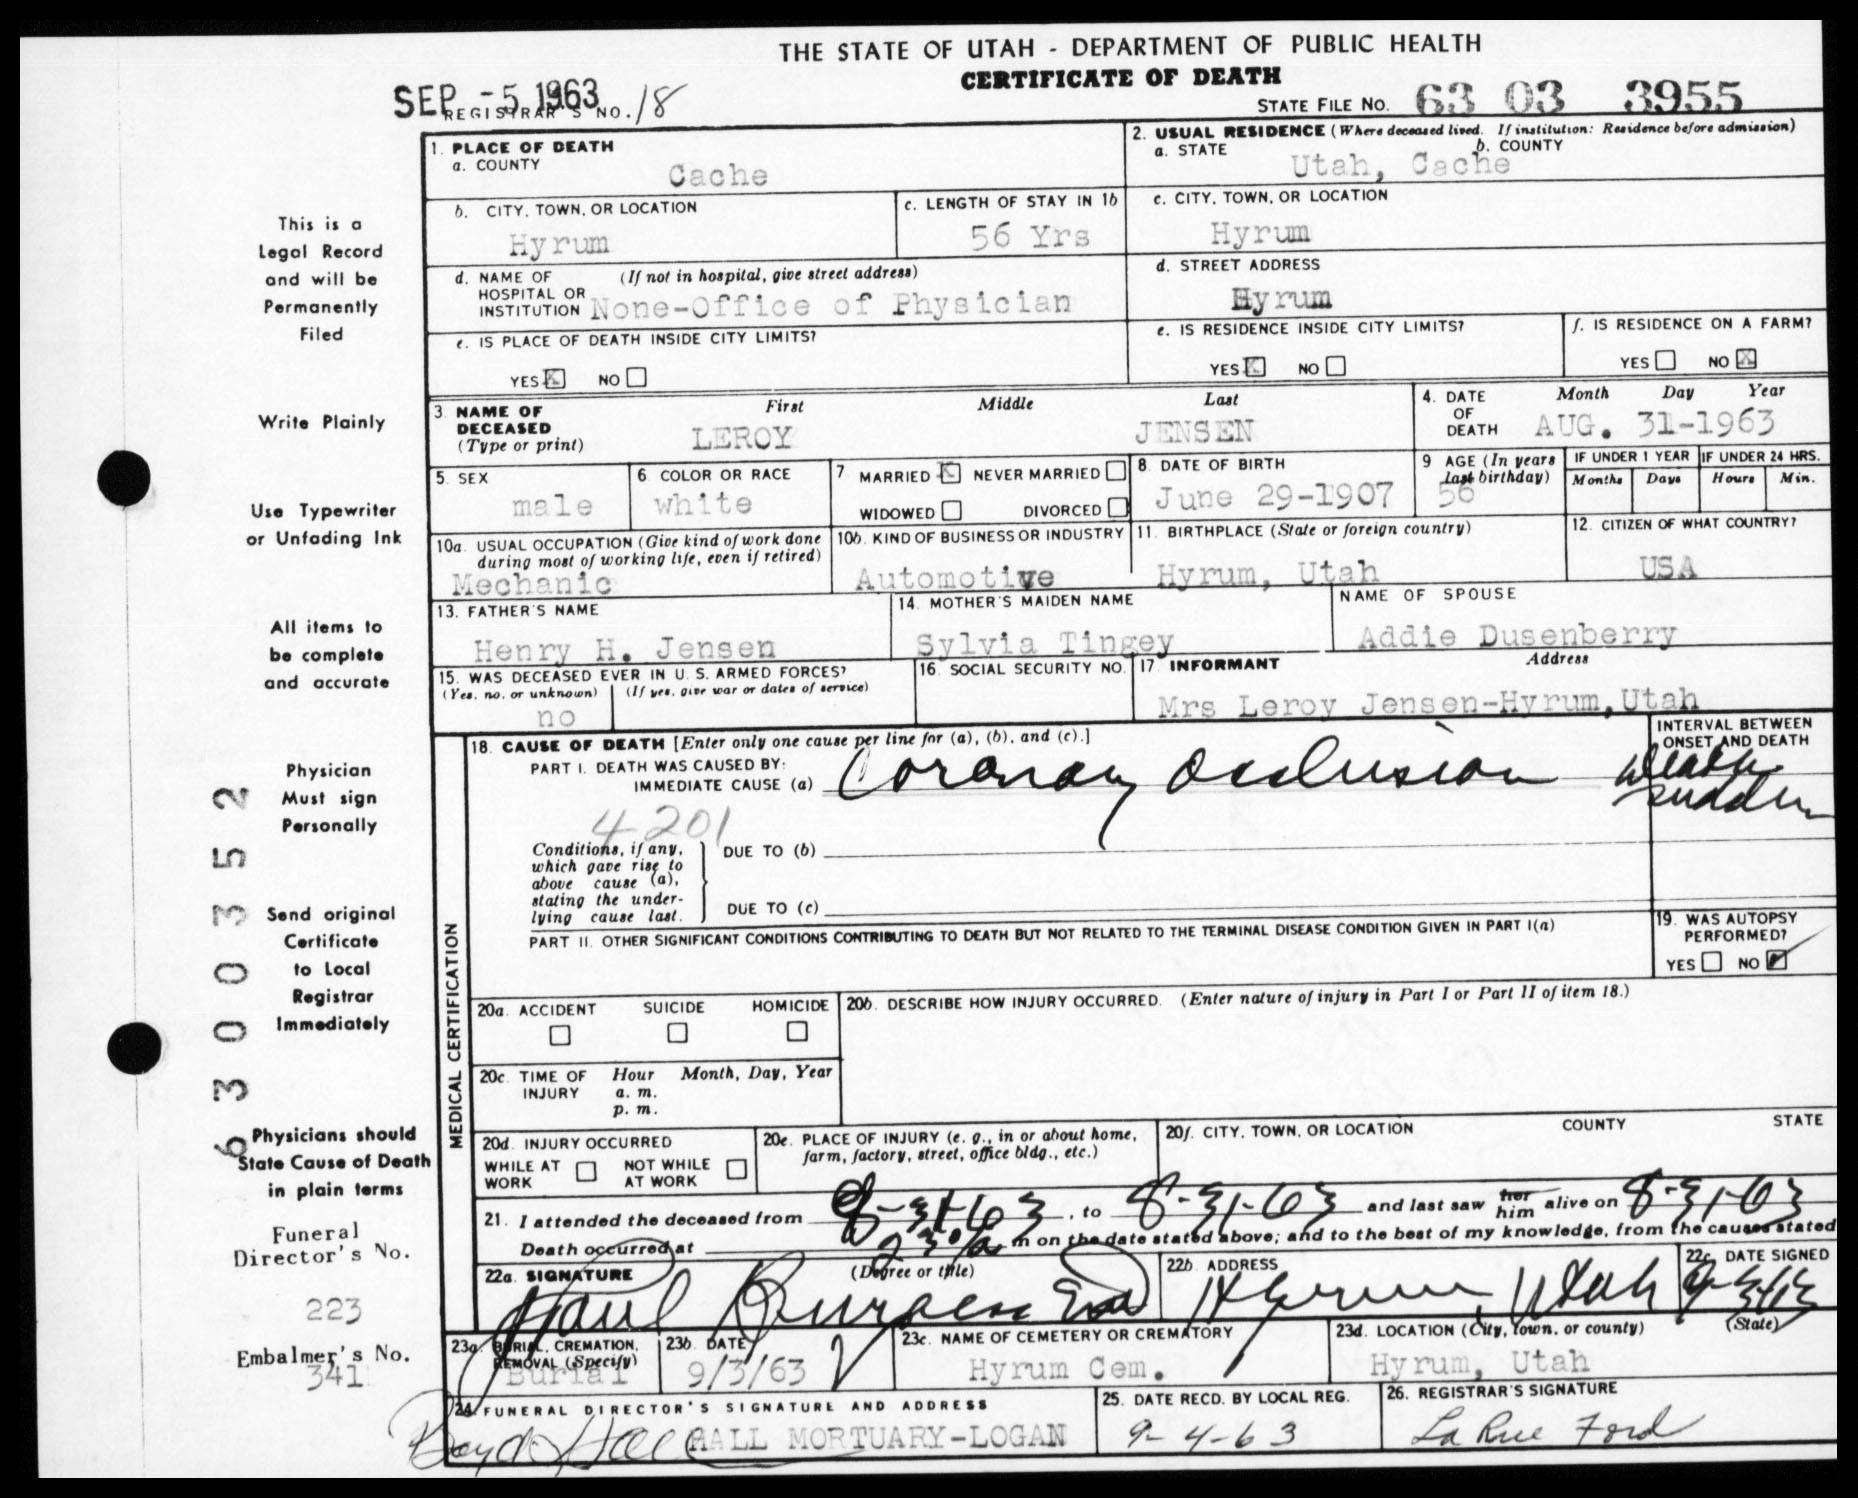 THE STATE OF UTAH - DEPARTMENT OF PUBLIC HEALTH
CERTIFICATE OF DEATH
SEP -5 1963
REGISTRAR'S NO. 18
STATE FILE NO. 63 03 3955
1. PLACE OF DEATH
a. COUNTY
Cache
2. USUAL RESIDENCE (Where deceased lived. If institution: Residence before admission)
a. STATE b. COUNTY
Utah, Cache
b. CITY, TOWN, OR LOCATION
Hyrum
c. LENGTH OF STAY IN 1b
56 Yrs
c. CITY, TOWN, OR LOCATION
Hyrum
d. NAME OF (If not in hospital, give street address)
HOSPITAL OR
INSTITUTION None-Office of Physician
d. STREET ADDRESS
Hyrum
e. IS PLACE OF DEATH INSIDE CITY LIMITS?
YES X NO
e. IS RESIDENCE INSIDE CITY LIMITS?
YES X NO
f. IS RESIDENCE ON A FARM?
YES NO X
3. NAME OF DECEASED
(Type or print)
First Middle Last
LEROY JENSEN
4. DATE OF DEATH
Month Day Year
AUG. 31-1963
5. SEX
male
6 COLOR OR RACE
white
7 MARRIED X NEVER MARRIED
WIDOWED DIVORCED
8. DATE OF BIRTH
June 29-1907
9 AGE (In years last birthday)
56
IF UNDER 1 YEAR
Months Days
IF UNDER 24 HRS.
Hours Min.
10a. USUAL OCCUPATION (Give kind of work done
during most of working life, even if retired)
Mechanic
10b. KIND OF BUSINESS OR INDUSTRY
Automotive
11. BIRTHPLACE (State or foreign country)
Hyrum, Utah
12. CITIZEN OF WHAT COUNTRY?
USA
13. FATHER'S NAME
Henry H. Jensen
14. MOTHER'S MAIDEN NAME
Sylvia Tingey
NAME OF SPOUSE
Addie Dusenberry
15. WAS DECEASED EVER IN U. S. ARMED FORCES?
(Yes, no, or unknown) (If yes, give war or dates of service)
no
16. SOCIAL SECURITY NO.
17. INFORMANT Address
Mrs Leroy Jensen-Hyrum, Utah
18. CAUSE OF DEATH [Enter only one cause per line for (a), (b), and (c).]
PART I. DEATH WAS CAUSED BY:
IMMEDIATE CAUSE (a) Coronary Occlusion
INTERVAL BETWEEN
ONSET AND DEATH
Death
sudden
4201
Conditions, if any,
which gave rise to
above cause (a),
stating the under-
lying cause last.
DUE TO (b)
DUE TO (c)
PART II. OTHER SIGNIFICANT CONDITIONS CONTRIBUTING TO DEATH BUT NOT RELATED TO THE TERMINAL DISEASE CONDITION GIVEN IN PART I(a)
19. WAS AUTOPSY
PERFORMED?
YES NO
MEDICAL CERTIFICATION
20a. ACCIDENT SUICIDE HOMICIDE
20b. DESCRIBE HOW INJURY OCCURRED. (Enter nature of injury in Part I or Part II of item 18.)
20c. TIME OF INJURY
Hour Month, Day, Year
a. m.
p. m.
20d. INJURY OCCURRED
WHILE AT WORK NOT WHILE AT WORK
20e. PLACE OF INJURY (e. g., in or about home,
farm, factory, street, office bldg., etc.)
20f. CITY, TOWN, OR LOCATION COUNTY STATE
21. I attended the deceased from 8-31-63, to 8-31-63 and last saw her him alive on 8-31-63
Death occurred at m on the date stated above; and to the best of my knowledge, from the causes stated
22a. SIGNATURE (Degree or title)
Paul Burgess
22b. ADDRESS
Hyrum, Utah
22c. DATE SIGNED
23a. BURIAL, CREMATION,
REMOVAL (Specify)
Burial
23b. DATE
9/3/63
23c. NAME OF CEMETERY OR CREMATORY
Hyrum Cem.
23d. LOCATION (City, town, or county) (State)
Hyrum, Utah
24. FUNERAL DIRECTOR'S SIGNATURE AND ADDRESS
Boyd Hall HALL MORTUARY-LOGAN
25. DATE RECD. BY LOCAL REG.
9-4-63
26. REGISTRAR'S SIGNATURE
LaRue Ford
This is a
Legal Record
and will be
Permanently
Filed
Write Plainly
Use Typewriter
or Unfading Ink
All items to
be complete
and accurate
Physician
Must sign
Personally
Send original
Certificate
to Local
Registrar
Immediately
Physicians should
State Cause of Death
in plain terms
Funeral
Director's No.
223
Embalmer's No.
341
6 3 0 3 5 2